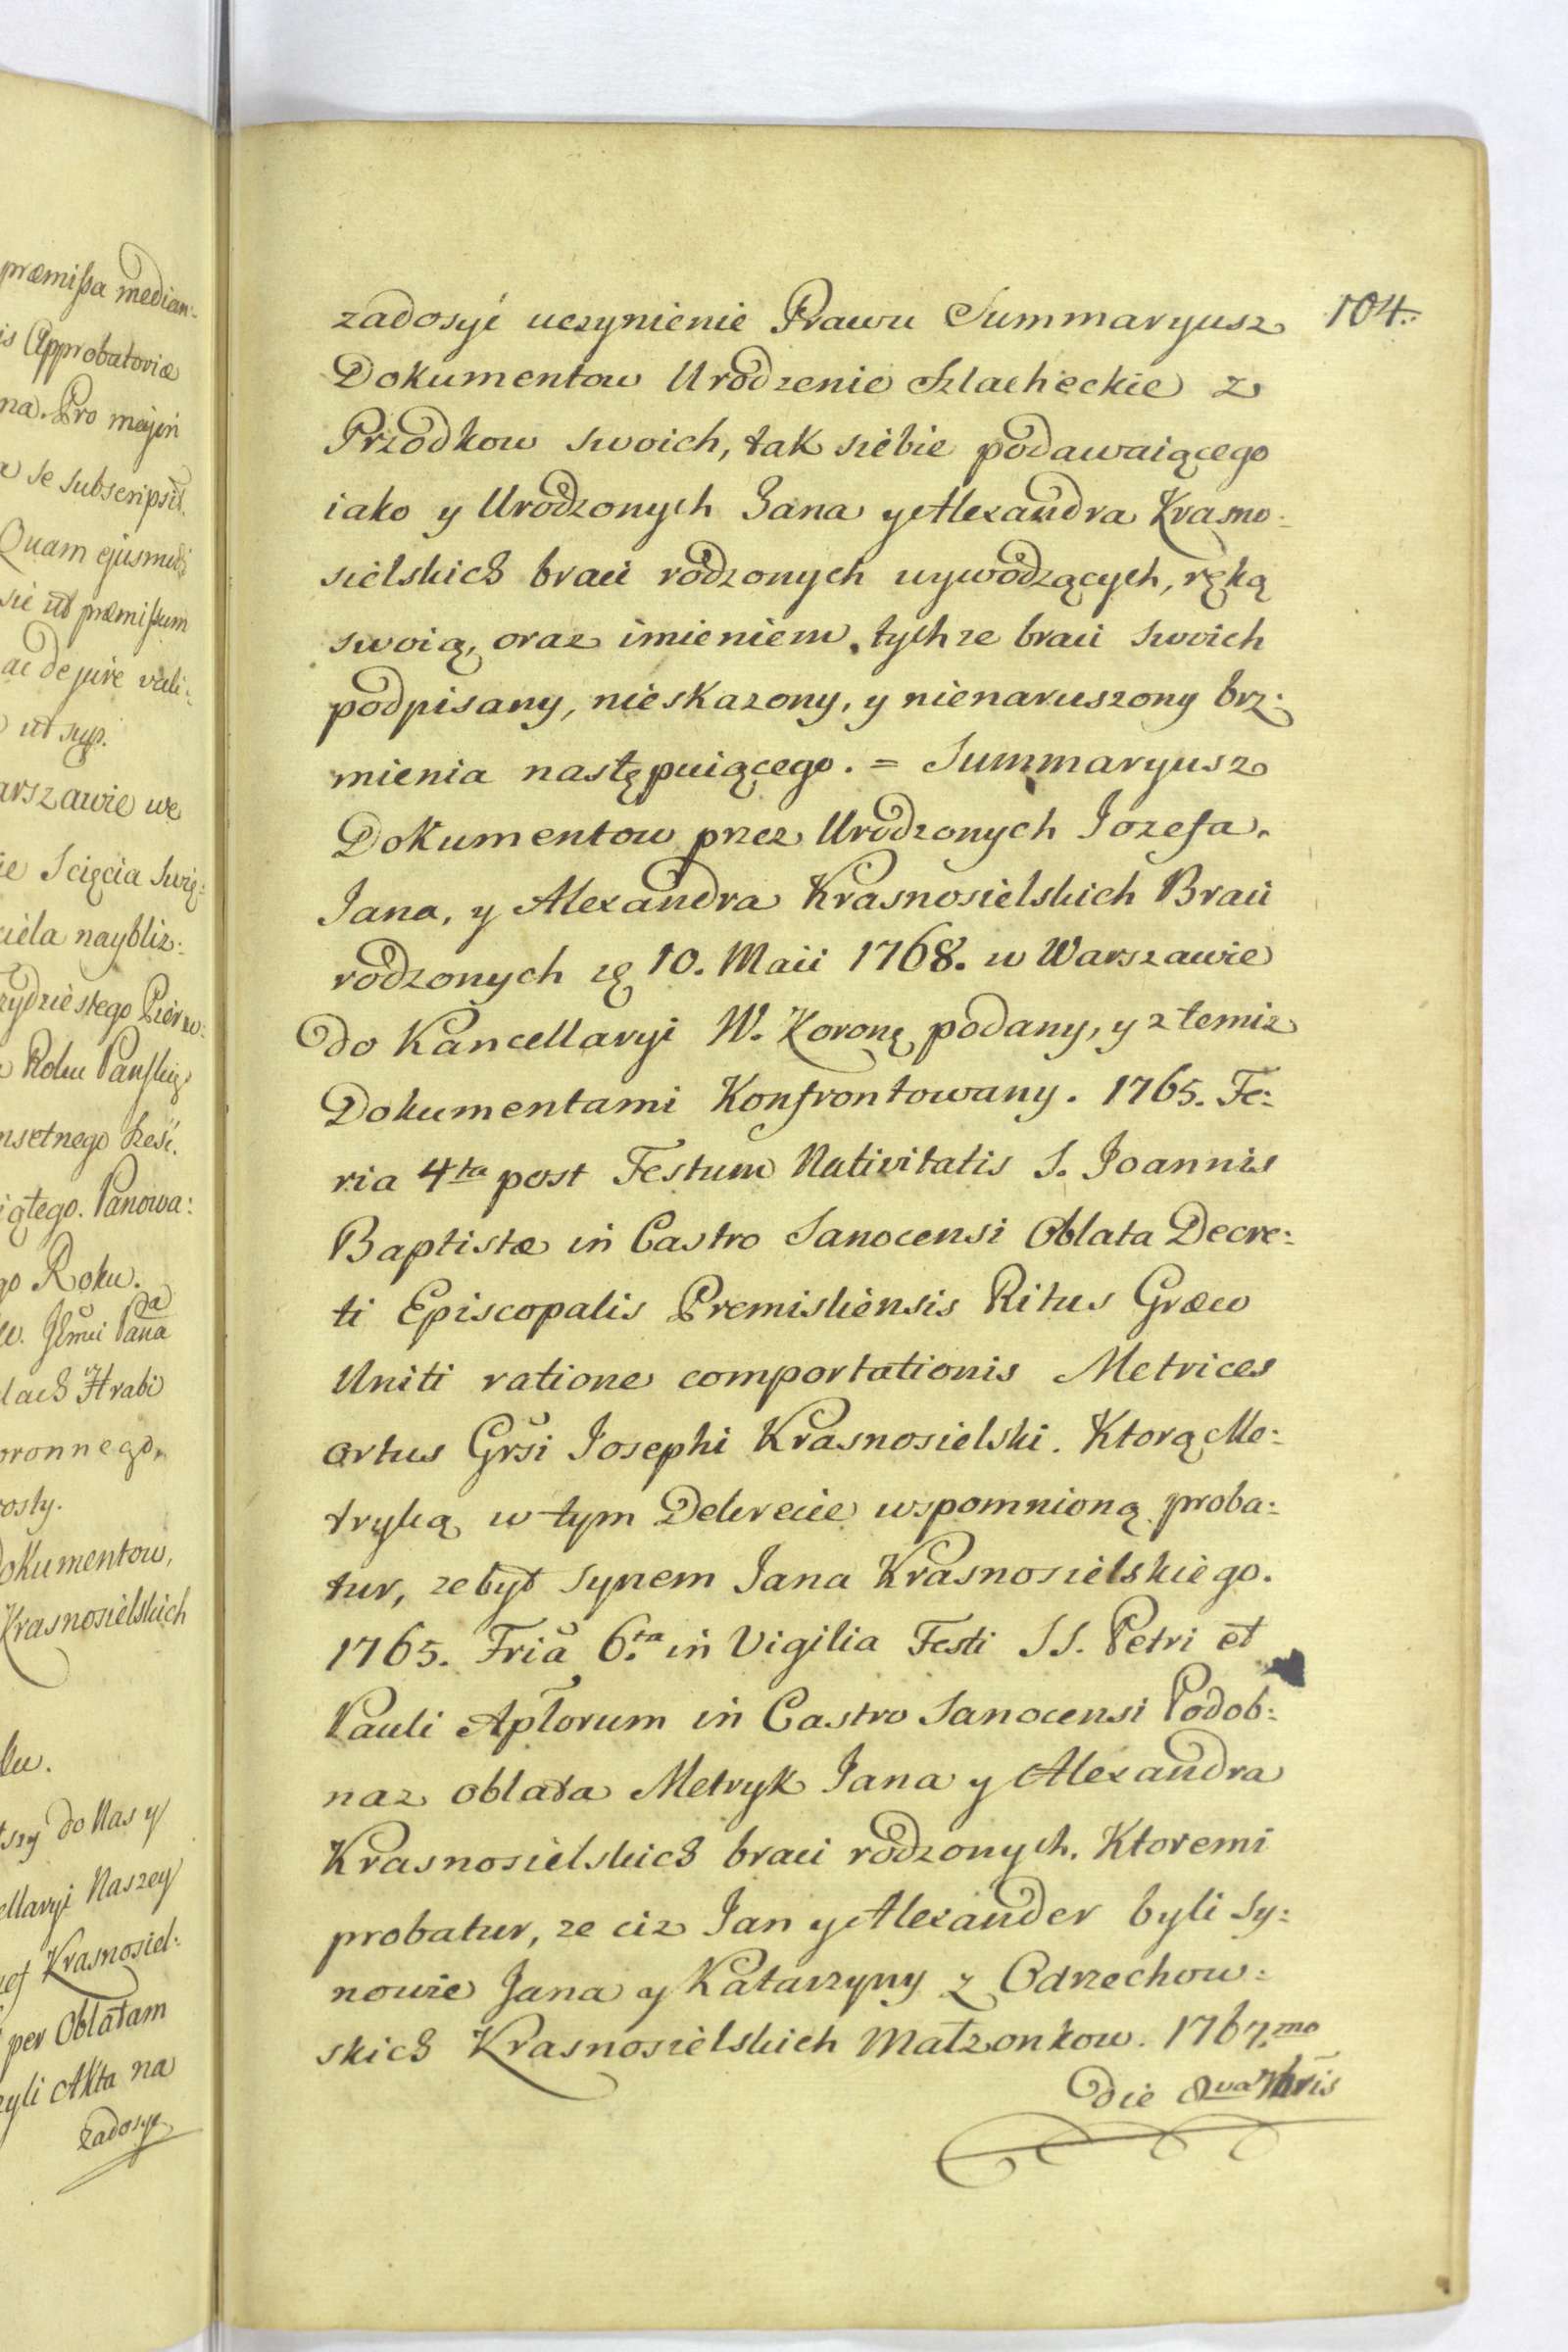 præmissa median:
is Approbatoriæ
na. Pro majori
se subscripsit.
Quam ejusmodi
sic ut præmissum
ac de jure vali:
ut sup.
arszawie we
ie Scięcia Swię:
ciela naybliz:
rzydziestego Pierw:
Roku Panskie
nsetnego szesc.
iątego. Panowa:
go Roku.
Jmci Pana
lach Hrabi
oronnego,
rosty.
Dokumentow,
Krasnosielskich
ku.
tszy do Nas y
ellaryi Naszey
zef Krasnosiel:
per Oblatam
zyli Akta na
zadosyc
104.
zadosyć uczynienie Prawu Summaryusz
Dokumentow Urodzenie Szlacheckie z
Przodkow swoich, tak siebie podawaiącego
iako y Urodzonych Jana y Alexandra Krasno:
sielskich braci rodzonych wywodzących, ręką
swoią, oraz imieniem tychze braci swoich
podpisany, nieskazony, y nienaruszony brz:
mienia następuiącego. = Summaryusz
Dokumentow przez Urodzonych Jozefa,
Jana, y Alexandra Krasnosielskich Braci
rodzonych zę 10. Maii 1768. w Warszawie
do Kancellaryi W. Koronę podany, y z temiz
Dokumentami Konfrontowany. 1765. Fe:
ria 4ta post Festum Nativitatis S. Joannis
Baptistæ in Castro Sanocensi Oblata Decre:
ti Episcopalis Premisliensis Ritus Græco
Uniti ratione comportationis Metrices
ortus Grsi Josephi Krasnosielski. Ktorą Me:
tryką w tym Dekrecie wspomnioną proba:
tur, ze był synem Jana Krasnosielskiego.
1765. Fria 6.ta in Vigilia Festi SS. Petri et
Pauli Aplorum in Castro Sanocensi Podob:
naz oblata Metryk Jana y Alexandra
Krasnosielskich braci rodzonych. Ktoremi
probatur, ze ciz Jan y Alexander byli Sy:
nowie Jana y Katarzyny z Odrzechow:
skich Krasnosielskich Małzonkow. 1767.mo
die 8va 7bris